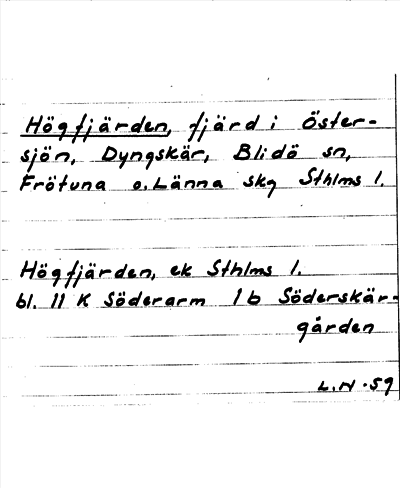 Högfjärden, fjärd i Öster-
sjön, Dyngskär, Blidö sn,
Frötuna o. Länna skg Sthlms l.
Högfjärden, ek Sthlms l.
bl. 11 K Söderarm 1 b Söderskär-
gården
L.N -59